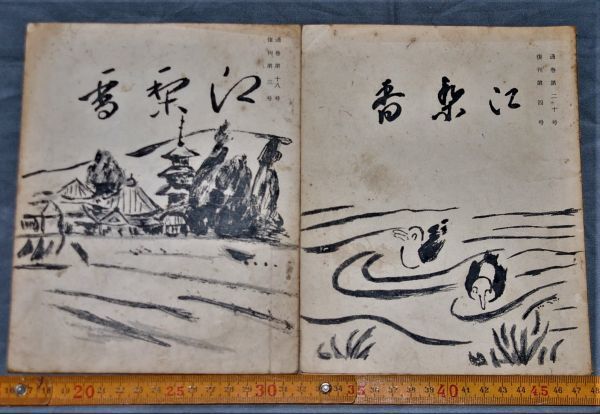 通巻第十八号
復刊第三号
江梨香
通巻第二十号
復刊第四号
江梨香
16 17 18 20 25 30 35 40 45